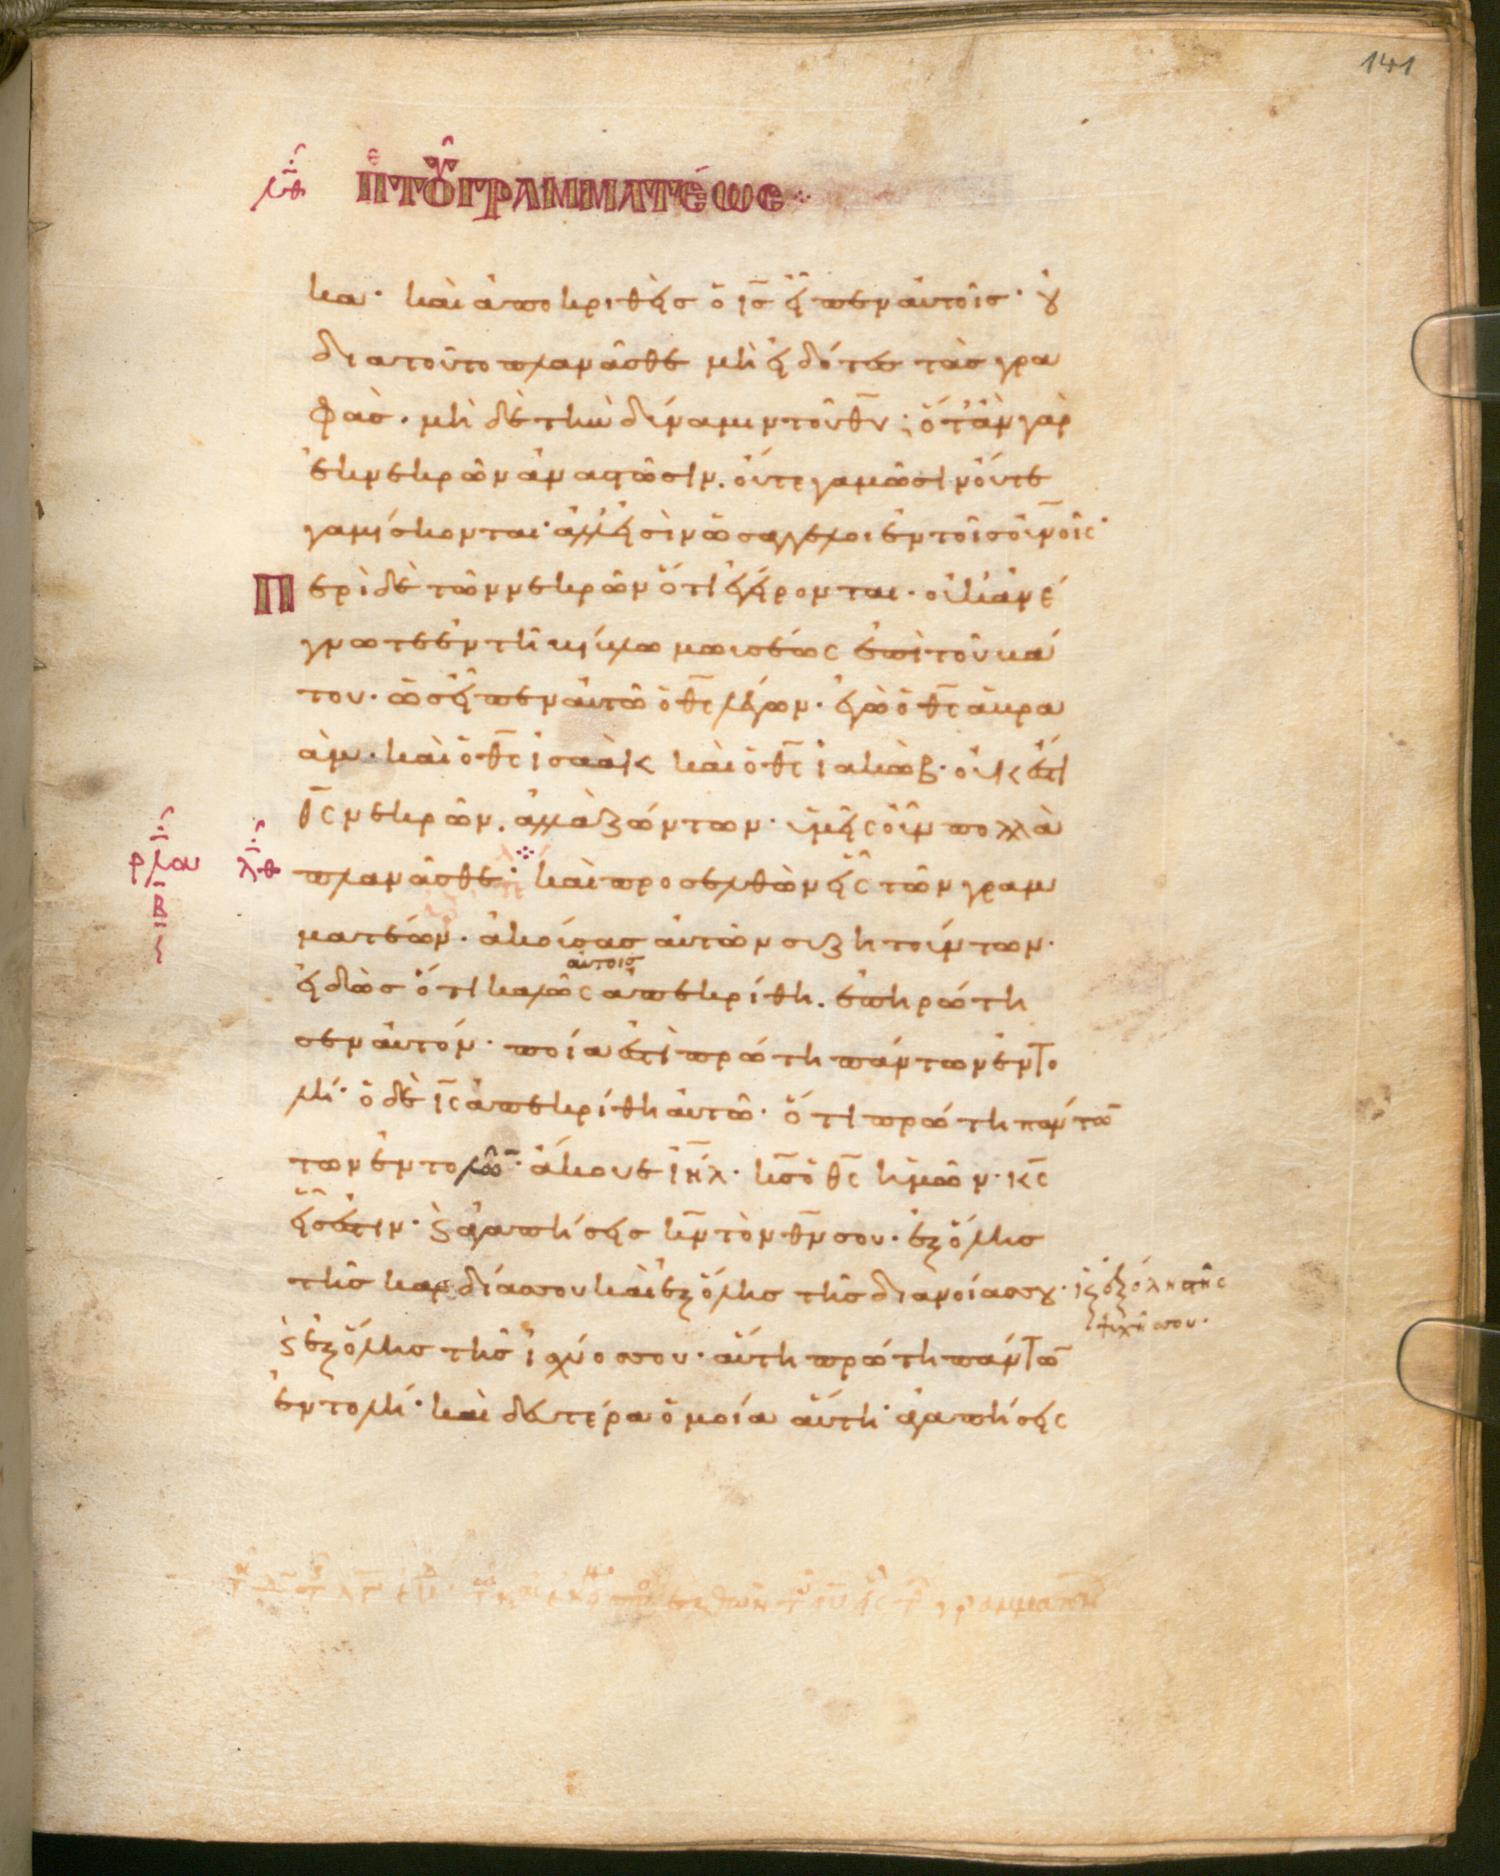 141
λθ Π̅ ΤΟΥ ΓΡΑΜΜΑΤΕΩΣ
κα· καὶ ἀποκριθεὶς ὁ ι̅ς̅ εἶπεν αὐτοῖς· οὐ
διατοῦτο πλανᾶσθε μὴ εἰδότες τὰς γρα
φὰς· μὴ δὲ τὴν δύναμιν τοῦ θ̅υ̅; ὅτἂν γὰρ
ἐκ νεκρῶν ἀναστῶσιν. οὔτε γαμῶσιν οὔτε
γαμίσκονται· ἀλλ' εἰσὶν ὡς ἄγγελοι ἐν τοῖς οὐ̅ν̅οῖς·
Περὶ δὲ τῶν νεκρῶν ὅτι ἐγείρονται· οὐκ ἀνέ
γνωτε ἐν τῆ βίβλω μωυσέως ἐπὶ τοῦ βά
του· ὡς εἶπεν αὐτῶ ὁ θ̅ς̅ λέγων· ἐγὼ ὁ θ̅ς̅ ἀβρα
ὰμ· καὶ ὁ θ̅ς̅ ἰσαὰκ καὶ ὁ θ̅ς̅ ἰακὼβ· οὐκ ἔστι
θ̅ς̅ νεκρῶν. ἀλλὰ ζώντων· ὑμεῖς οὖν πολλὰ
ρλα λθ πλανᾶσθε· καὶ προσελθὼν εἷς τῶν γραμ
Β
ματέων· ἀκούσας αὐτῶν συζητούντων·
αὐτοῖς
εἰδὼς ὅτι καλῶς ἀπεκρίθη. ἐπηρώτη
σεν αὐτόν· ποία ἐστὶ πρώτη πάντων ἐντο
λή· ὁ δὲ ι̅ς̅ ἀπεκρίθη αὐτῶ· ὅτι πρώτη πάντω̅
τῶν ἐντολῶ̅· ἄκουε ι̅η̅λ̅· κ̅ς̅ ὁ θ̅ς̅ ἡμῶν· κ̅ς̅
εἷς ἐστιν· ϛ ἀγαπήσεις κ̅ν̅ τὸν θ̅ν̅ σου· ἐξ ὅλης
τῆς καρδίας σου καὶ ἐξ ὅλης τῆς διανοίας σου· ϛ ἐξ ὅλης τῆς
ψυχῆς σου·
ϛ ἐξ ὅλης τῆς ἰσχύος σου· αὕτη πρώτη πάντω̅
ἐντολή· καὶ δευτέρα ὁμοία αὕτη· ἀγαπήσεις